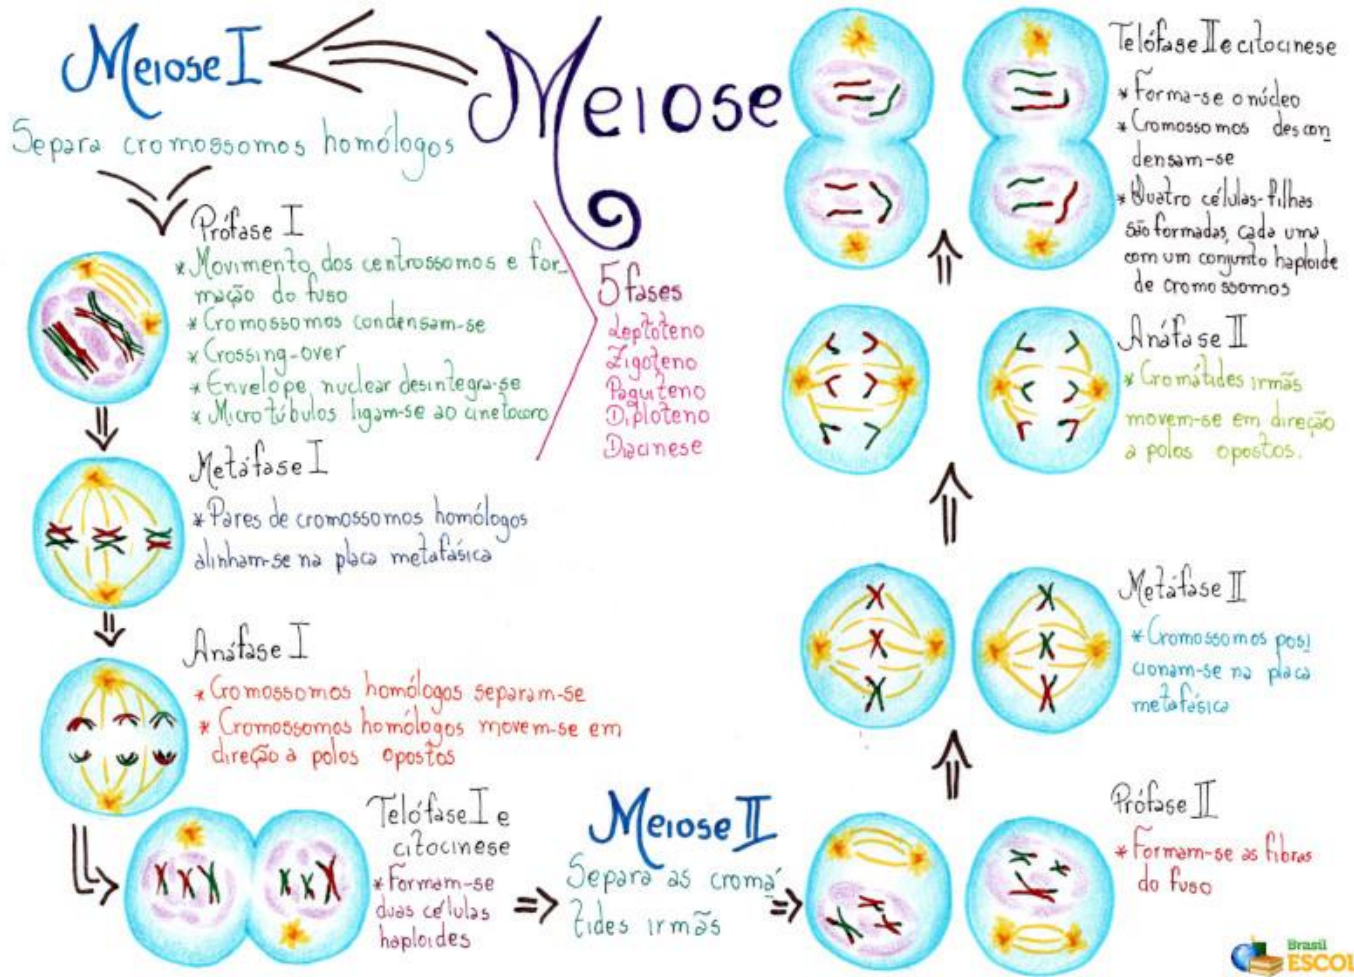 Meiose
Meiose I
Separa cromossomos homólogos
Prófase I
* Movimento dos centrossomos e for_
mação do fuso
* Cromossomos condensam-se
* Crossing-over
* Envelope nuclear desintegra-se
* Microtúbulos ligam-se ao cinetocoro
5 fases
Leptóteno
Zigóteno
Paquíteno
Diplóteno
Diacinese
Metáfase I
* Pares de cromossomos homólogos
alinham-se na placa metafásica
Anáfase I
* Cromossomos homólogos separam-se
* Cromossomos homólogos movem-se em
direção a polos opostos
Telófase I e
citocinese
* Formam-se
duas células
haploides
Meiose II
Separa as cromá
tides irmãs
Prófase II
* Formam-se as fibras
do fuso
Metáfase II
* Cromossomos posi
cionam-se na placa
metafásica
Anáfase II
* Cromátides irmãs
movem-se em direção
a polos opostos.
Telófase II e citocinese
* Forma-se o núcleo
* Cromossomos descon_
densam-se
* Quatro células-filhas
são formadas, cada uma
com um conjunto haploide
de cromossomos
Brasil
ESCOL